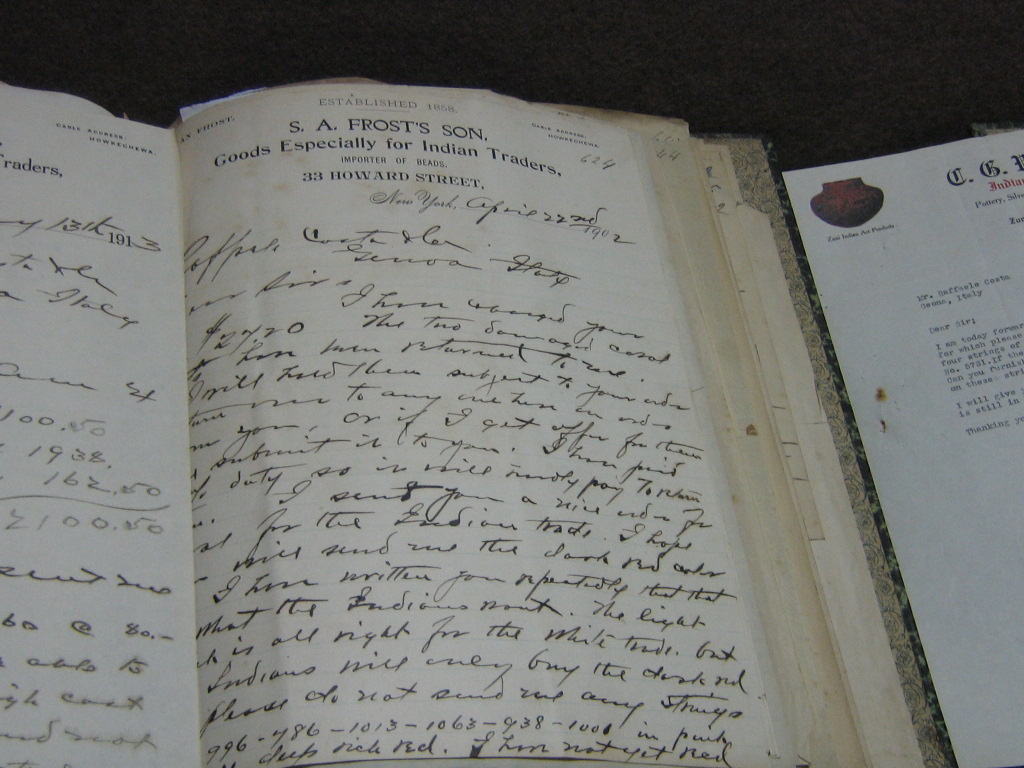 CABLE ADDRESS:
HOWRECHEWA.
Traders,
13th 1913
Italy
100.50
1938.
162.50
2100.50
60 @ 80.-
able to
cost
not
ESTABLISHED 1858.
FROST.
CABLE ADDRESS:
HOWRECHEWA.
S. A. FROST'S SON,
624
Goods Especially for Indian Traders,
IMPORTER OF BEADS.
33 HOWARD STREET,
New York, April 22nd 1902
Costa & Co
Genoa Italy
Sirs
I have charged your
$27.20 The two damaged coral
have been returned to me.
I will hold them subject to your order
over to any one here in order
you, or if I get offer for them
submit it to you. I have paid
duty so it will hardly pay to return
I send you a nice order for
for the Indian trade. I hope
will send me the dark red color
I have written you repeatedly that that
what the Indians want. The light
is all right for the white trade. but
Indians will only buy the dark red.
please do not send me any strings
996-486-1013-1063-938-1000 in pink
deep rich red. I have not yet recd
C. G.
Indian
Pottery, Silver
Zuni Indian Art Products
Zu
Mr. Raffaele Costa
Genoa, Italy
Dear Sir;
I am today forwar
for which please
four strings of
No. 5731. If the
Can you furnish
on these. stri
I will give
is still in
Thanking yo